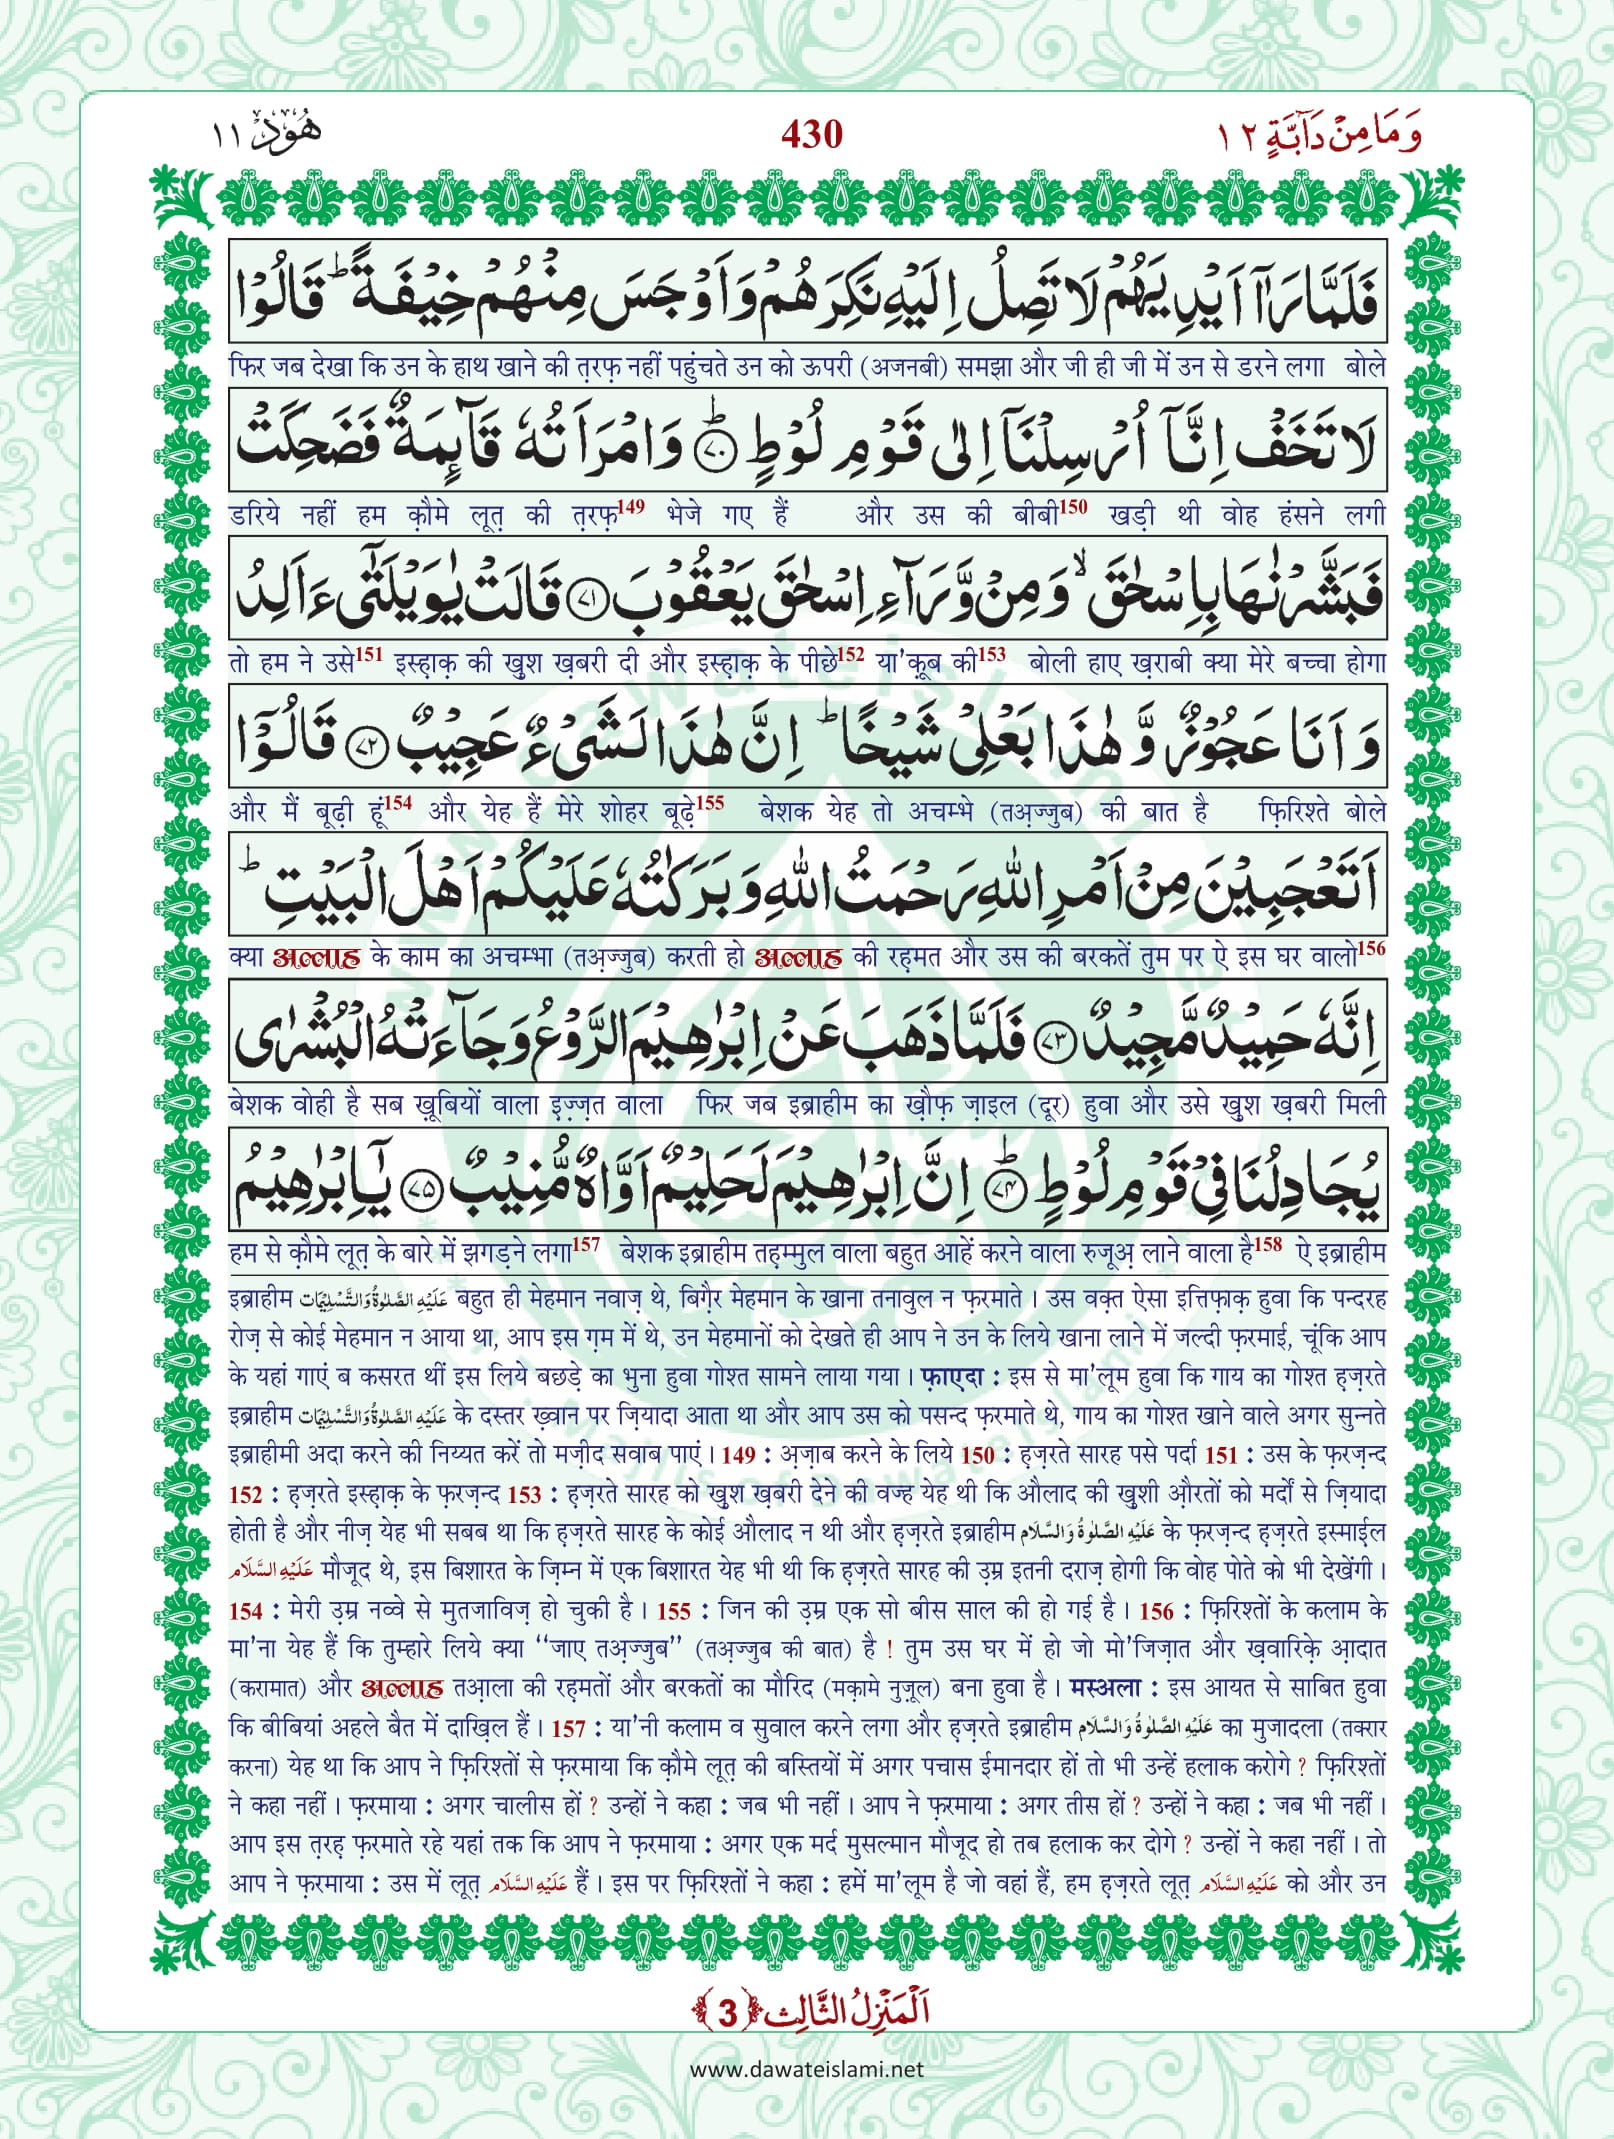 وَمَا مِنْ دَآبَّةٍ ١٢
430
هُوْد ١١
فَلَمَّا رَاٰۤ اَيْدِيَهُمْ لَا تَصِلُ اِلَيْهِ نَكِرَهُمْ وَ اَوْجَسَ مِنْهُمْ خِيْفَةًؕ قَالُوْا
फिर जब देखा कि उन के हाथ खाने की त़रफ़ नहीं पहुंचते उन को ऊपरी (अजनबी) समझा और जी ही जी में उन से डरने लगा बोले
لَا تَخَفْ اِنَّاۤ اُرْسِلْنَاۤ اِلٰى قَوْمِ لُوْطٍؕ ﴿۷۰﴾ وَ امْرَاَتُهٗ قَآىِٕمَةٌ فَضَحِكَتْ
डरिये नहीं हम क़ौमे लूत़ की त़रफ़149 भेजे गए हैं और उस की बीबी150 खड़ी थी वोह हंसने लगी
فَبَشَّرْنٰهَا بِاِسْحٰقَۙ وَ مِنْ وَّرَآءِ اِسْحٰقَ يَعْقُوْبَ ﴿۷۱﴾ قَالَتْ يٰوَيْلَتٰۤى ءَاَلِدُ
तो हम ने उसे151 इस्ह़ाक़ की ख़ुश ख़बरी दी और इस्ह़ाक़ के पीछे152 या'क़ूब की153 बोली हाए ख़राबी क्या मेरे बच्चा होगा
وَ اَنَا عَجُوْزٌ وَّ هٰذَا بَعْلِيْ شَيْخًاؕ اِنَّ هٰذَا لَشَيْءٌ عَجِيْبٌ ﴿۷۲﴾ قَالُوْۤا
और मैं बूढ़ी हूं154 और येह हैं मेरे शोहर बूढ़े155 बेशक येह तो अचम्भे (तअ़ज्जुब) की बात है फ़िरिश्ते बोले
اَتَعْجَبِيْنَ مِنْ اَمْرِ اللّٰهِ رَحْمَتُ اللّٰهِ وَ بَرَكٰتُهٗ عَلَيْكُمْ اَهْلَ الْبَيْتِؕ
क्या अल्लाह के काम का अचम्भा (तअ़ज्जुब) करती हो अल्लाह की रह़मत और उस की बरकतें तुम पर ऐ इस घर वालो156
اِنَّهٗ حَمِيْدٌ مَّجِيْدٌ ﴿۷۳﴾ فَلَمَّا ذَهَبَ عَنْ اِبْرٰهِيْمَ الرَّوْعُ وَ جَآءَتْهُ الْبُشْرٰى
बेशक वोही है सब ख़ूबियों वाला इ़ज़्ज़त वाला फिर जब इब्राहीम का ख़ौफ़ ज़ाइल (दूर) हुवा और उसे ख़ुश ख़बरी मिली
يُجَادِلُنَا فِيْ قَوْمِ لُوْطٍؕ ﴿۷۴﴾ اِنَّ اِبْرٰهِيْمَ لَحَلِيْمٌ اَوَّاهٌ مُّنِيْبٌ ﴿۷۵﴾ يٰۤاِبْرٰهِيْمُ
हम से क़ौमे लूत़ के बारे में झगड़ने लगा157 बेशक इब्राहीम तह़म्मुल वाला बहुत आहें करने वाला रुजूअ़ लाने वाला है158 ऐ इब्राहीम
इब्राहीम عَلَيْهِ الصَّلٰوةُ وَالتَّسْلِيْمَات बहुत ही मेहमान नवाज़ थे, बिग़ैर मेहमान के खाना तनावुल न फ़रमाते । उस वक़्त ऐसा इत्तिफ़ाक़ हुवा कि पन्दरह
रोज़ से कोई मेहमान न आया था, आप इस ग़म में थे, उन मेहमानों को देखते ही आप ने उन के लिये खाना लाने में जल्दी फ़रमाई, चूंकि आप
के यहां गाएं ब कसरत थीं इस लिये बछड़े का भुना हुवा गोश्त सामने लाया गया । फ़ाएदा : इस से मा'लूम हुवा कि गाय का गोश्त ह़ज़रते
इब्राहीम عَلَيْهِ الصَّلٰوةُ وَالتَّسْلِيْمَات के दस्तर ख़्वान पर ज़ियादा आता था और आप उस को पसन्द फ़रमाते थे, गाय का गोश्त खाने वाले अगर सुन्नते
इब्राहीमी अदा करने की निय्यत करें तो मज़ीद सवाब पाएं । 149 : अ़ज़ाब करने के लिये 150 : ह़ज़रते सारह पसे पर्दा 151 : उस के फ़रज़न्द
152 : ह़ज़रते इस्ह़ाक़ के फ़रज़न्द 153 : ह़ज़रते सारह को ख़ुश ख़बरी देने की वज्ह येह थी कि औलाद की ख़ुशी औ़रतों को मर्दों से ज़ियादा
होती है और नीज़ येह भी सबब था कि ह़ज़रते सारह के कोई औलाद न थी और ह़ज़रते इब्राहीम عَلَيْهِ الصَّلٰوةُ وَالسَّلَام के फ़रज़न्द ह़ज़रते इस्माईल
عَلَيْهِ السَّلَام मौजूद थे, इस बिशारत के ज़िम्न में एक बिशारत येह भी थी कि ह़ज़रते सारह की उ़म्र इतनी दराज़ होगी कि वोह पोते को भी देखेंगी ।
154 : मेरी उ़म्र नव्वे से मुतजाविज़ हो चुकी है । 155 : जिन की उ़म्र एक सो बीस साल की हो गई है । 156 : फ़िरिश्तों के कलाम के
मा'ना येह हैं कि तुम्हारे लिये क्या “जाए तअ़ज्जुब” (तअ़ज्जुब की बात) है ! तुम उस घर में हो जो मो'जिज़ात और ख़वारिक़े आ़दात
(करामात) और अल्लाह तआ़ला की रह़मतों और बरकतों का मौरिद (मक़ामे नुज़ूल) बना हुवा है । मस्अला : इस आयत से साबित हुवा
कि बीबियां अहले बैत में दाख़िल हैं । 157 : या'नी कलाम व सुवाल करने लगा और ह़ज़रते इब्राहीम عَلَيْهِ الصَّلٰوةُ وَالسَّلَام का मुजादला (तक्रार
करना) येह था कि आप ने फ़िरिश्तों से फ़रमाया कि क़ौमे लूत़ की बस्तियों में अगर पचास ईमानदार हों तो भी उन्हें हलाक करोगे ? फ़िरिश्तों
ने कहा नहीं । फ़रमाया : अगर चालीस हों ? उन्हों ने कहा : जब भी नहीं । आप ने फ़रमाया : अगर तीस हों ? उन्हों ने कहा : जब भी नहीं ।
आप इस त़रह़ फ़रमाते रहे यहां तक कि आप ने फ़रमाया : अगर एक मर्द मुसल्मान मौजूद हो तब हलाक कर दोगे ? उन्हों ने कहा नहीं । तो
आप ने फ़रमाया : उस में लूत़ عَلَيْهِ السَّلَام हैं । इस पर फ़िरिश्तों ने कहा : हमें मा'लूम है जो वहां हैं, हम ह़ज़रते लूत़ عَلَيْهِ السَّلَام को और उन
اَلْمَنْزِلُ الثَّالِث ﴿3﴾
www.dawateislami.net